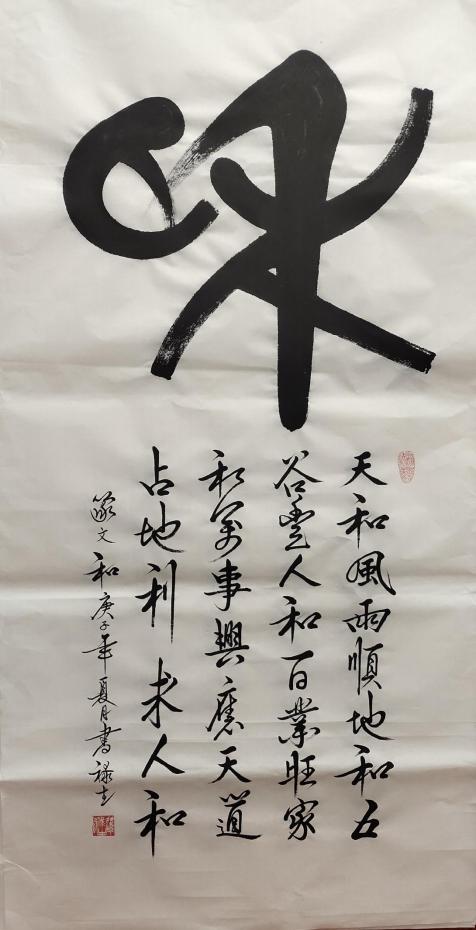 和
天和風雨順地和五
谷豐人和百業旺家
和萬事興應天道
占地利求人和
篆文和庚子年夏月書禄志